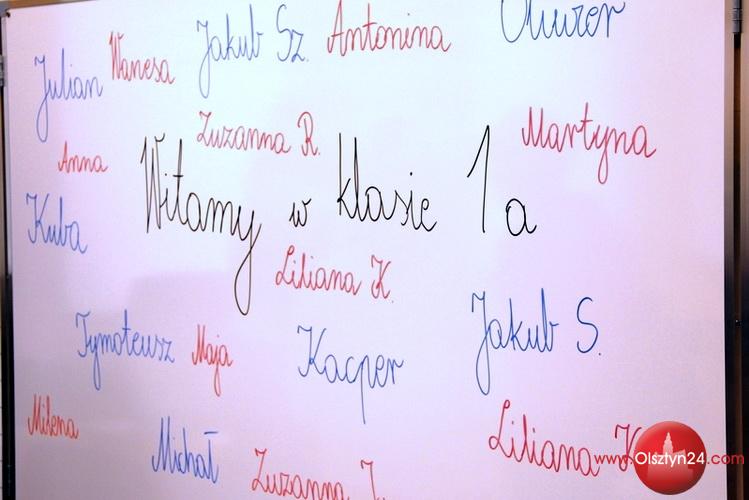 Julian
Wanesa
Jakub Sz.
Antonina
Oliwier
Zuzanna R.
Martyna
Anna
Witamy w klasie 1a
Kuba
Liliana K.
Tymoteusz
Maja
Kacper
Jakub S.
Milena
Michał
Zuzanna
Liliana K
www.Olsztyn24.com